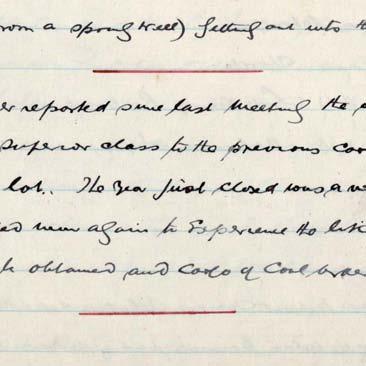 rom a spring well) getting out into th
er reported since last meeting the
superior class to the previous car
lot. The year just closed was a
never again to experience the
obtained and cargo of coal